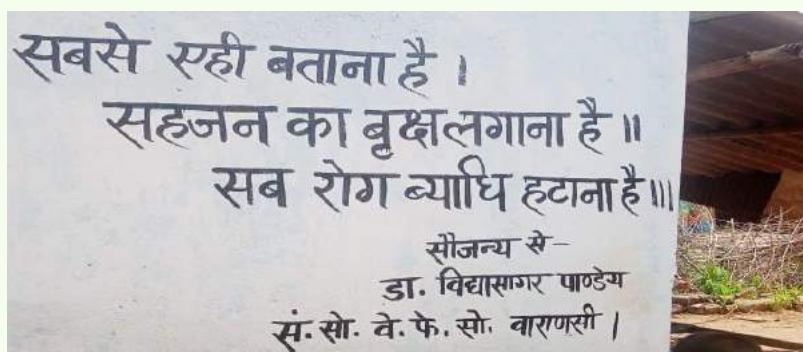 सबसे एही बताना है ।
सहजन का बृक्ष लगाना है ॥
सब रोग ब्याधि हटाना है ।।।
सौजन्य से -
डा. विद्यासागर पाण्डेय
सं. सो. वे. फे. सो. वाराणसी ।